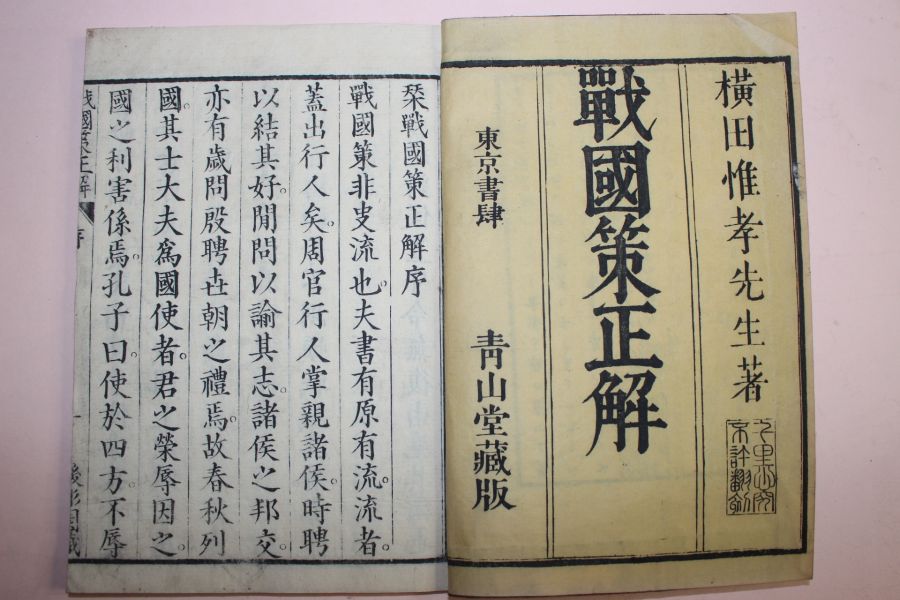 橫田惟孝先生著
戰國策正解
東京書肆 青山堂藏版
千里必究
不許翻刻
栞戰國策正解序
戰國策非史流也。夫書有原有流。流者。
蓋出行人矣。周官行人掌親諸侯。時聘
以結其好。閒問以諭其志。諸侯之邦交。
亦有歲問殷聘世朝之禮焉。故春秋列
國。其士大夫爲國使者。君之榮辱因之。
國之利害係焉。孔子曰。使於四方。不辱
戰國策正解 序 一